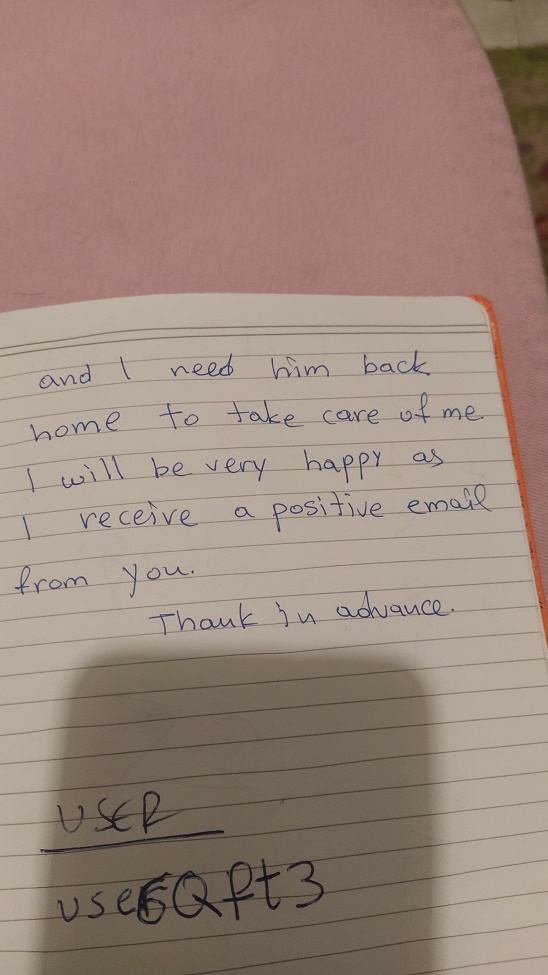 and I need him back
home to take care of me
I will be very happy as
I receive a positive email
from you.
Thank in advance.
USER